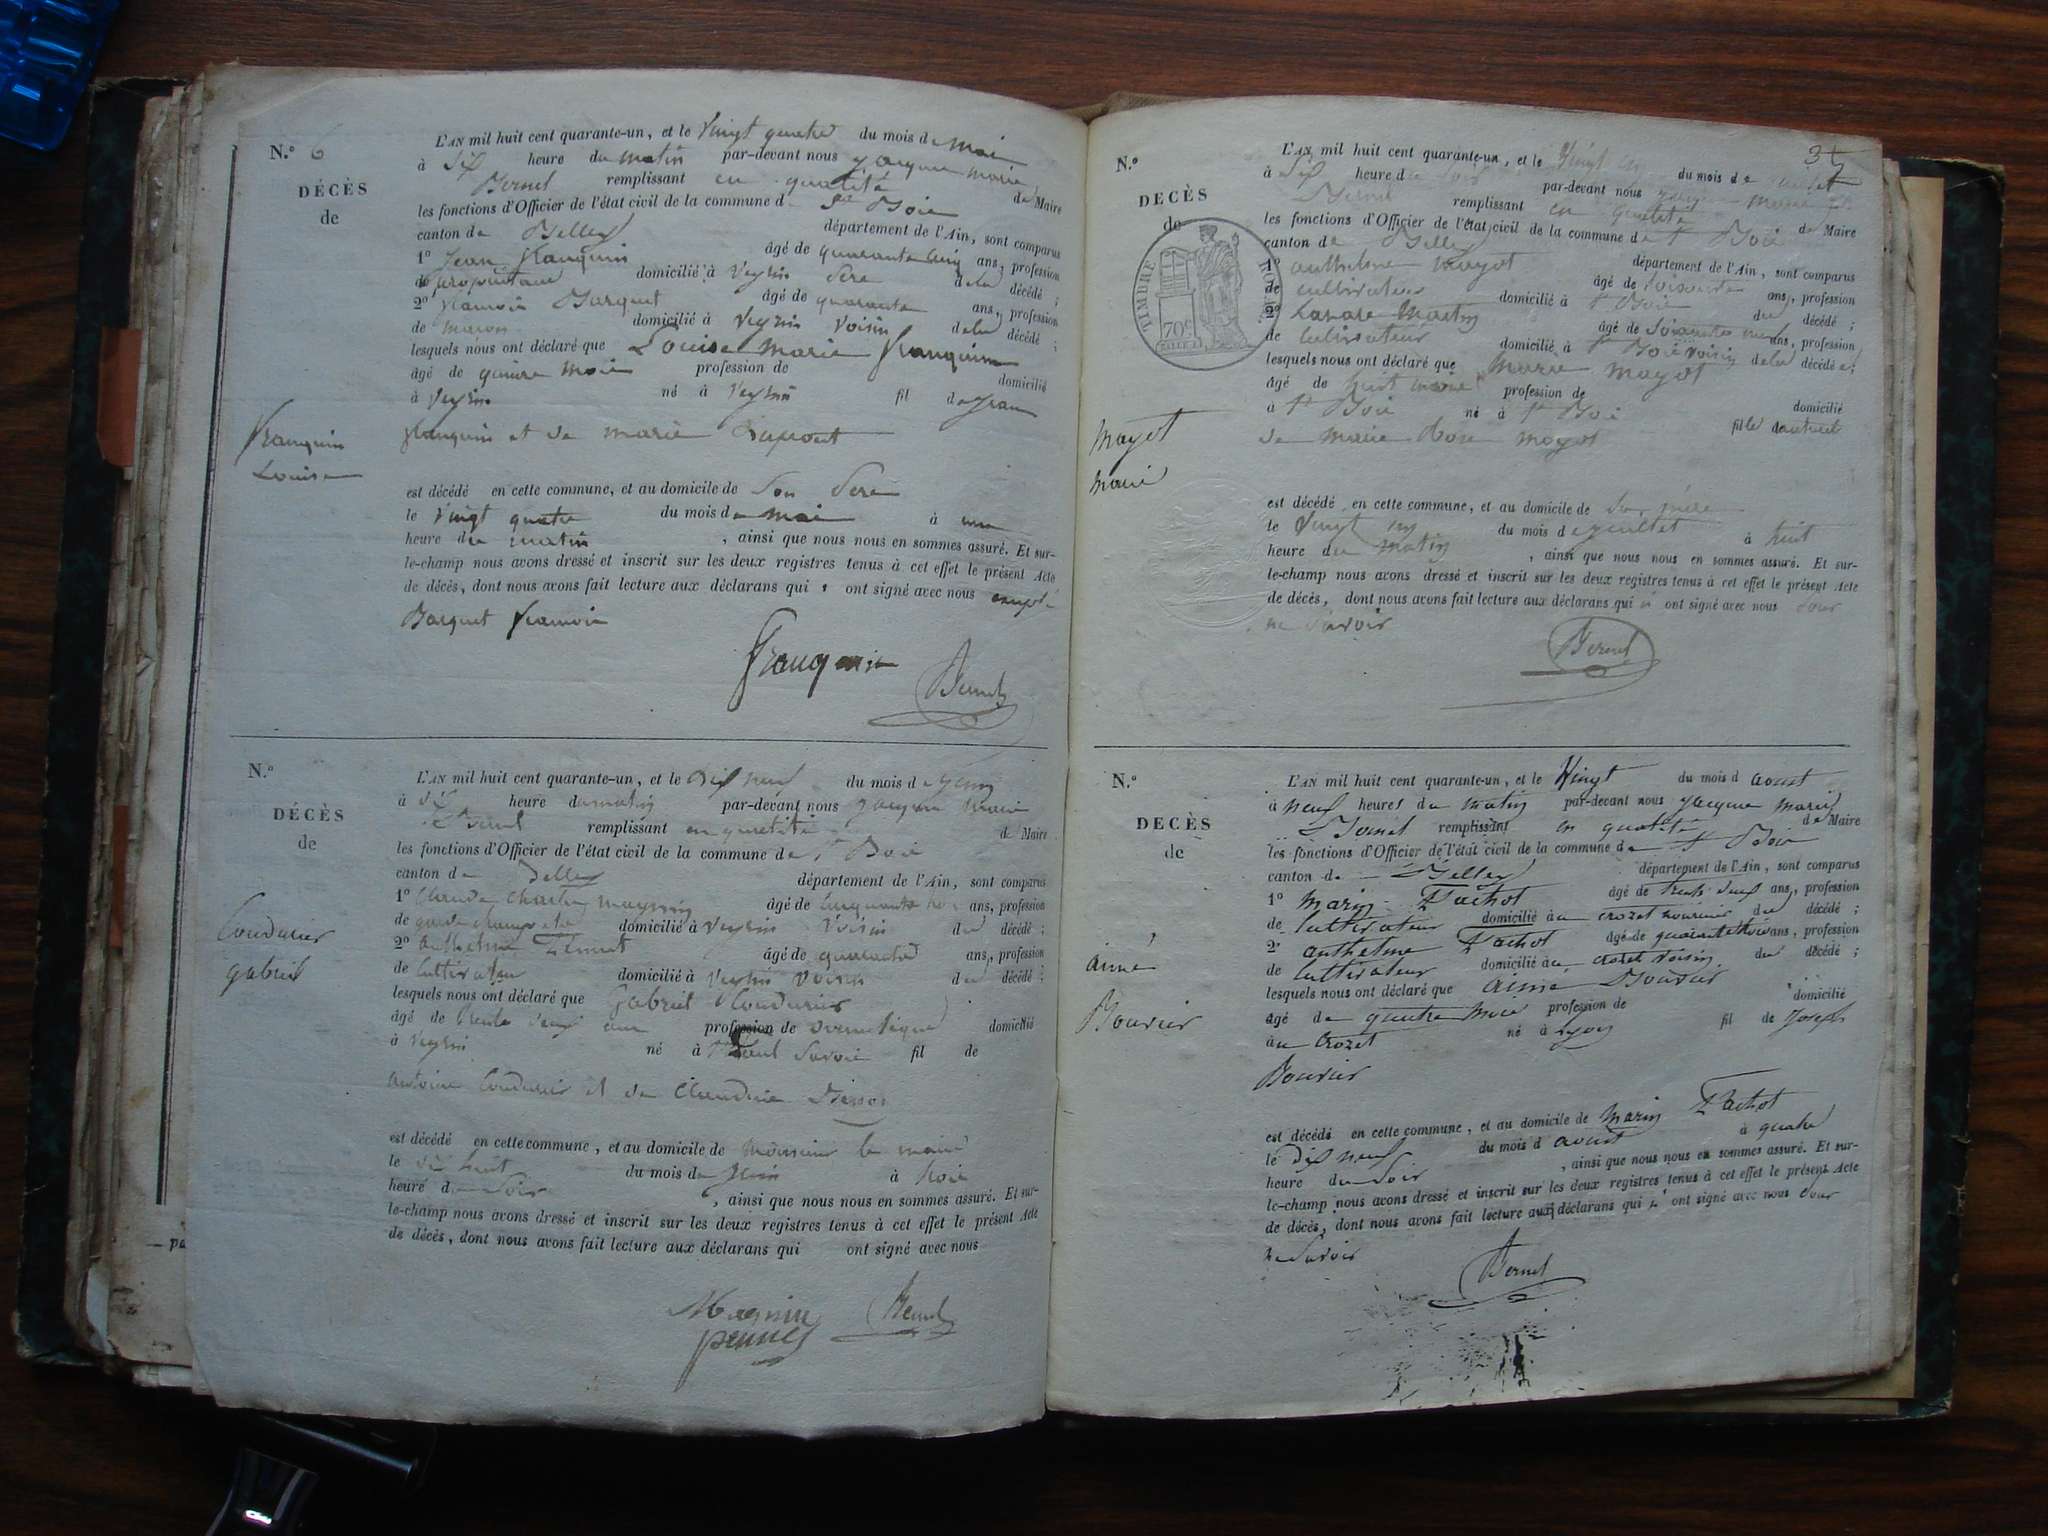 N.º 6
DÉCÈS
de
Franquin
Louise
L'AN mil huit cent quarante-un, et le Vingt quatre du mois de Mai
à Six heure du matin par-devant nous Jacque Marie
Bernel remplissant en qualité de Maire
les fonctions d'Officier de l'état civil de la commune de St Boie
canton de Belley département de l'Ain, sont comparus
1º Jean Franquin âgé de quarante cinq ans, profession
de propriétaire domicilié à Veyrin Père de la décédé ;
2º François Barquet âgé de quarante ans, profession
de maçon domicilié à Veyrin Voisin de la décédé ;
lesquels nous ont déclaré que Louise Marie Franquin
âgé de quatre Mois profession de domicilié
à Veyrin né à Veyrin fil de Jean
franquin et de marie Dupont
est décédé en cette commune, et au domicile de Son Père
le Vingt quatre du mois de Mai à une
heure du matin , ainsi que nous nous en sommes assuré. Et sur-
le-champ nous avons dressé et inscrit sur les deux registres tenus à cet effet le présent Acte
de décès, dont nous avons fait lecture aux déclarans qui ont signé avec nous excepté
Barquet François
Franquin Bernel
N.º
DÉCÈS
de
Coudurier
gabriel
L'AN mil huit cent quarante-un, et le Dix neuf du mois de Juin
à Six heure du matin par-devant nous Jacque Marie
Bernel remplissant en qualité de Maire
les fonctions d'Officier de l'état civil de la commune de St Boie
canton de Belley département de l'Ain, sont comparus
1º Claude Charle Magnin âgé de Cinquante ans, profession
de garde champetre domicilié à Veyrin Voisin du décédé ;
2º Anthelme âgé de quarante ans, profession
de Cultivateur domicilié à Veyrin Voisin du décédé ;
lesquels nous ont déclaré que Gabriel Coudurier
âgé de trente Deux ans profession de Domestique domicilié
à Veyrin né à St Paul Savoie fil de
Antoine Coudurier et de Claudine
est décédé en cette commune, et au domicile de Monsieur le maire
le dix huit du mois de Juin à trois
heure du Soir , ainsi que nous nous en sommes assuré. Et sur-
le-champ nous avons dressé et inscrit sur les deux registres tenus à cet effet le présent Acte
de décès, dont nous avons fait lecture aux déclarans qui ont signé avec nous
Magnin Bernel
N.º
DÉCÈS
de
Mayot
Marie
TIMBRE ROYAL
70c
L'AN mil huit cent quarante-un, et le Vingt un du mois de Juillet
à Six heure du Soir par-devant nous Jacque Marie
Bernel remplissant en qualité de Maire
les fonctions d'Officier de l'état civil de la commune de St Boie
canton de Belley département de l'Ain, sont comparus
1º Anthelme Mayot âgé de soixante ans, profession
de cultivateur domicilié à St Boie du décédé ;
2º Lazare Martin âgé de soixante neuf ans, profession
de Cultivateur domicilié à St Boie voisin de la décédée ;
lesquels nous ont déclaré que Marie Mayot
âgé de huit mois profession de domicilié
à St Boie né à St Boie fille naturel
de Marie Mayot
est décédé en cette commune, et au domicile de Sa mère
le Vingt un du mois de Juillet à huit
heure du Matin , ainsi que nous nous en sommes assuré. Et sur-
le-champ nous avons dressé et inscrit sur les deux registres tenus à cet effet le présent Acte
de décès, dont nous avons fait lecture aux déclarans qui n' ont signé avec nous pour
ne Savoir
Bernel
N.º
DECÈS
de
aimé
Bouvier
L'AN mil huit cent quarante-un, et le Vingt du mois d aoust
à neuf heures du matin par-devant nous Jacque Marie
Bernel remplissant en qualité de Maire
les fonctions d'Officier de l'état civil de la commune de St Boie
canton de Belley département de l'Ain, sont comparus
1º Marin Pachot âgé de trente deux ans, profession
de Cultivateur domicilié au Crozet du décédé ;
2º anthelme Pachot âgé de quarante trois ans, profession
de Cultivateur domicilié au Crozet Voisin du décédé ;
lesquels nous ont déclaré que aimé Bouvier
âgé de quatre Mois profession de domicilié
au Crozet né à Lyon fil de Joseph
Bouvier
est décédé en cette commune, et au domicile de Marin Pachot
le Dix neuf du mois d aoust à quatre
heure du Soir , ainsi que nous nous en sommes assuré. Et sur-
le-champ nous avons dressé et inscrit sur les deux registres tenus à cet effet le présent Acte
de décès, dont nous avons fait lecture aux déclarans qui n' ont signé avec nous pour
ne Savoir
Bernel